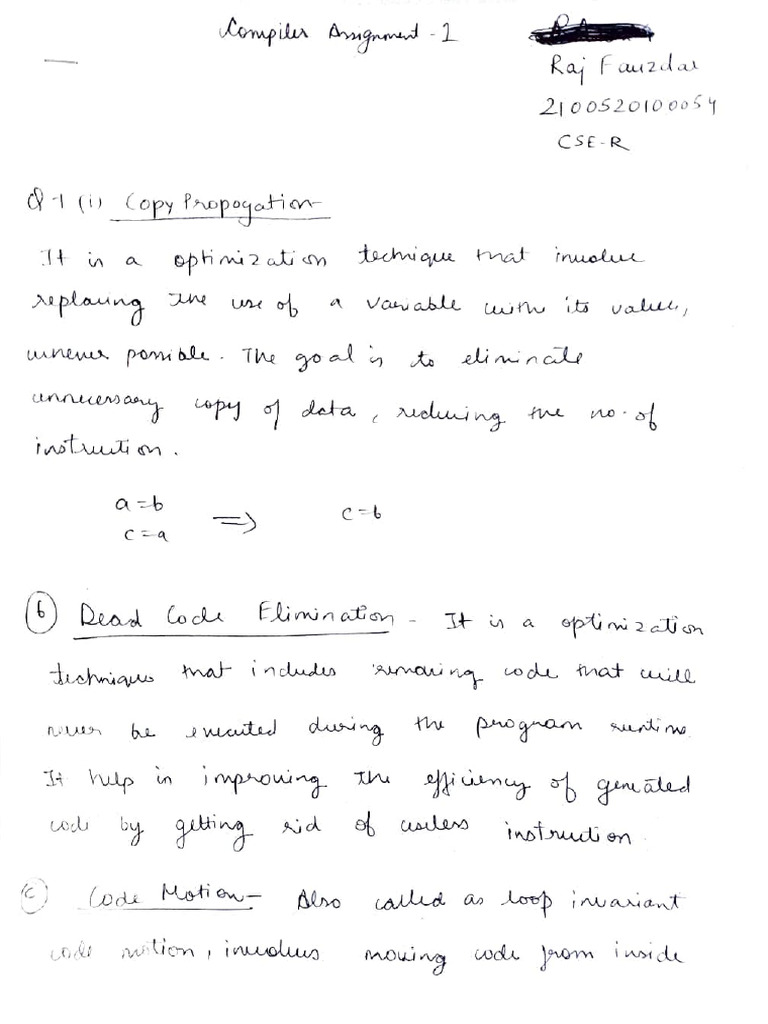 Compiler Assignment - 1
Raj Fauzdar
2100520100054
CSE-R
Q-1 (i) Copy Propogation-
It is a optimization technique that involve
replacing the use of a variable with its value,
whenever possible. The goal is to eliminate
unnecessary copy of data, reducing the no. of
instruction.
a=b
c=a ⇒ c=b
(b) Dead Code Elimination - It is a optimization
technique that includes removing code that will
never be executed during the program runtime.
It help in improving the efficiency of generated
code by getting rid of useless instruction.
(c) Code Motion- Also called as loop invariant
code motion, involves moving code from inside